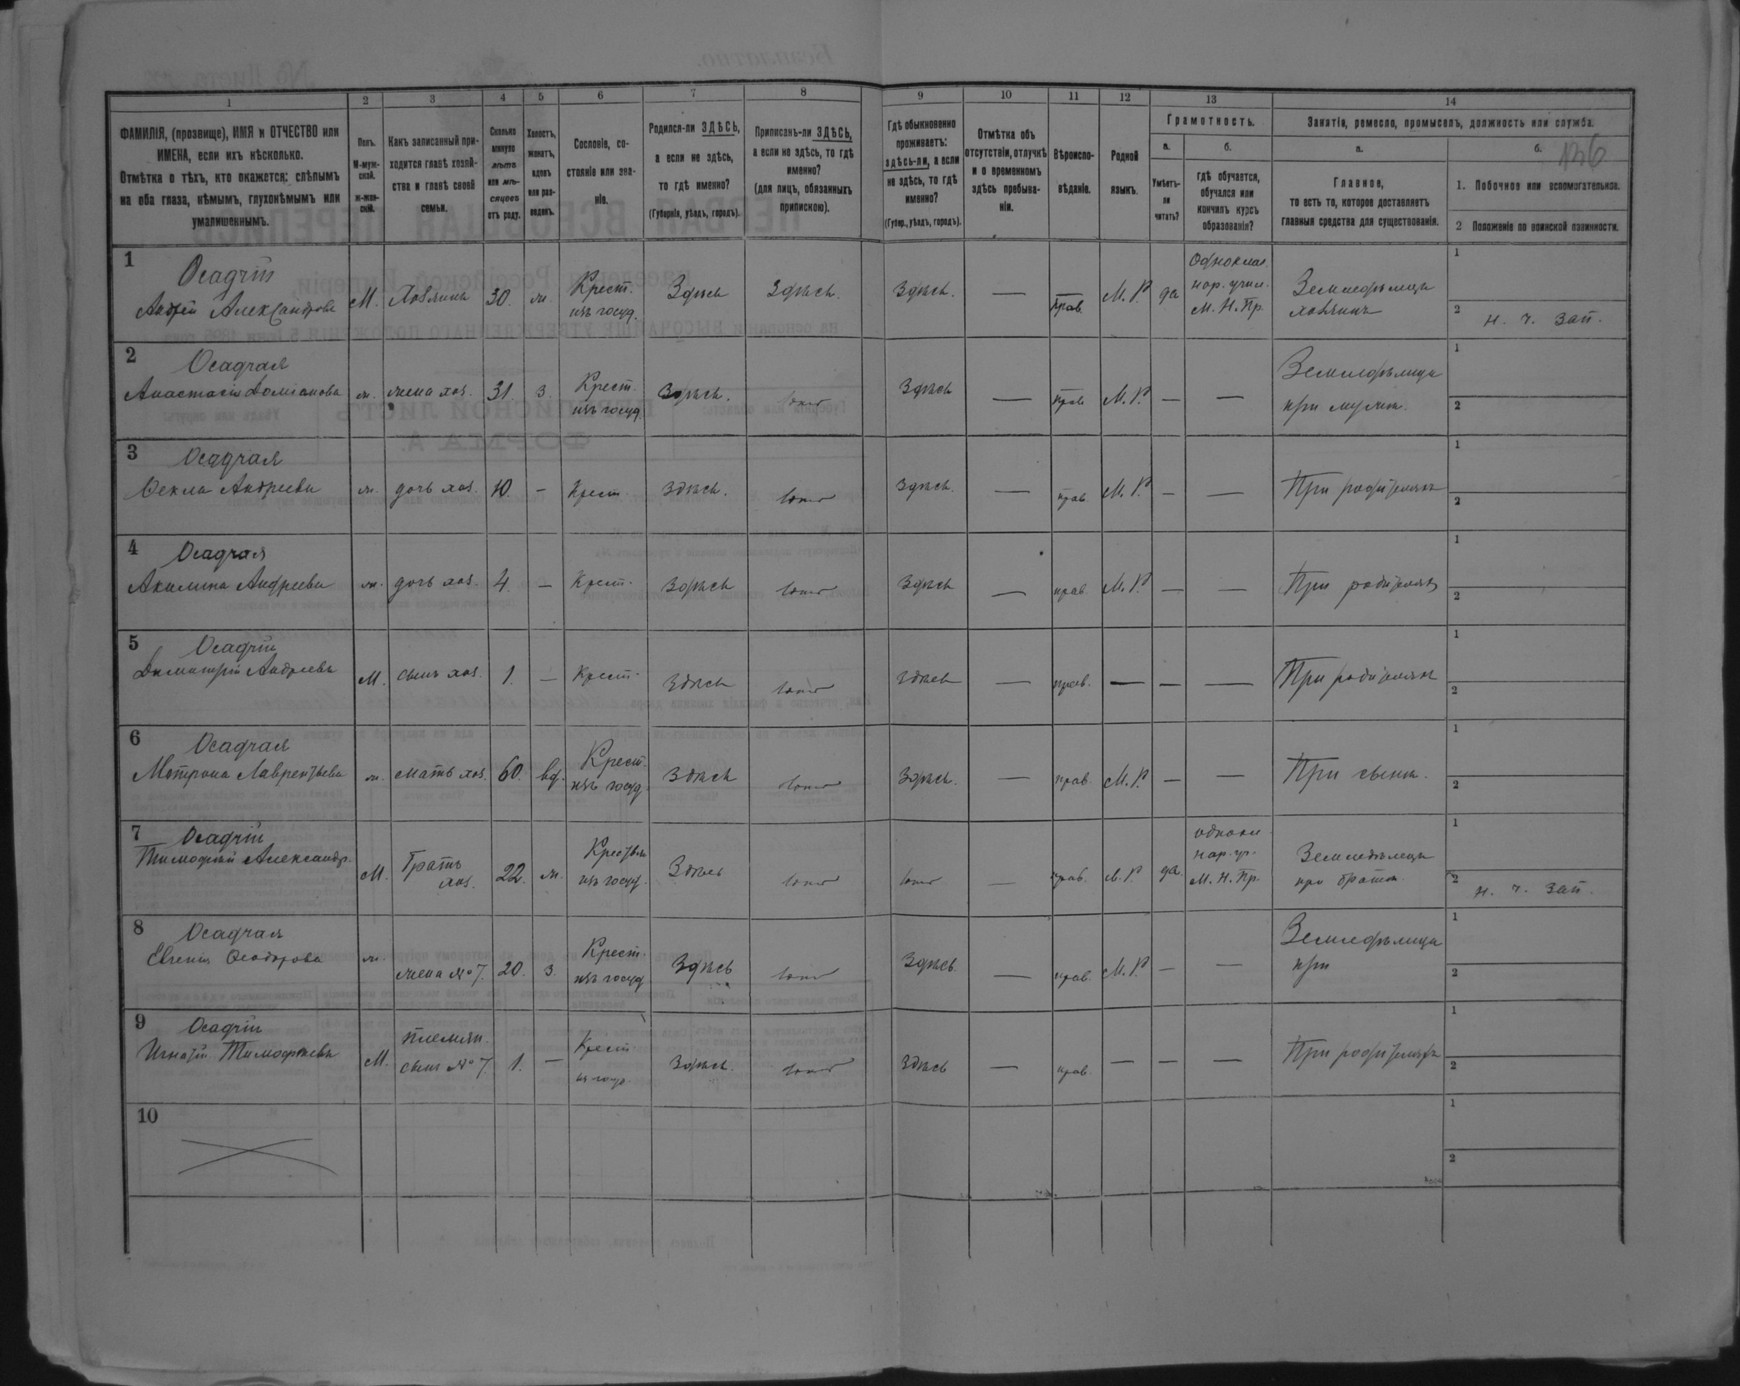 1
2
3
4
5
6
7
8
9
10
11
12
13
14
ФАМИЛІЯ, (прозвище), ИМЯ и ОТЧЕСТВО или
ИМЕНА, если ихъ нѣсколько.
Отмѣтка о тѣхъ, кто окажется: слѣпымъ
на оба глаза, нѣмымъ, глухонѣмымъ или
умалишеннымъ.
Полъ.
М-муж-
ской.
ж-жен-
скій.
Какъ записанный при-
ходится главѣ хозяй-
ства и главѣ своей
семьи.
Сколько
минуло
лѣтъ
или мѣ-
сяцевъ
отъ роду.
Холостъ,
женатъ,
вдовъ
или раз-
веденъ.
Сословіе, со-
стояніе или зва-
ніе.
Родился-ли ЗДѢСЬ,
а если не здѣсь,
то гдѣ именно?
(Губернія, уѣздъ, городъ).
Приписанъ-ли ЗДѢСЬ,
а если не здѣсь, то гдѣ
именно?
(для лицъ, обязанныхъ
припискою).
Гдѣ обыкновенно
проживаетъ:
здѣсь-ли, а если
не здѣсь, то гдѣ
именно?
(Губер., уѣздъ, городъ).
Отмѣтка объ
отсутствіи, отлучкѣ
и о временномъ
здѣсь пребыва-
ніи.
Вѣроиспо-
вѣданіе.
Родной
языкъ.
Грамотность.
а.
Умѣетъ-
ли
читать?
б.
гдѣ обучается,
обучался или
кончилъ курсъ
образованія?
Занятіе, ремесло, промыселъ, должность или служба.
а.
Главное,
то есть то, которое доставляетъ
главныя средства для существованія.
б.
136
1. Побочное или вспомогательное.
2 Положеніе по воинской повинности.
1
Осадчій
Андрей Александровъ
М.
Хозяинъ
30.
ж.
Крест.
изъ госуд.
Здѣсь
Здѣсь.
Здѣсь.
—
прав.
М. Р.
да
Одноклас.
нар. учил.
М. Н. Пр.
Земледѣлецъ
хозяинъ
1
2 н. ч. зап.
2
Осадчая
Анастасія Доміанова
ж.
жена хоз.
31.
з.
Крест.
изъ госуд.
Здѣсь.
тоже
Здѣсь
—
прав.
М. Р.
—
—
Земледѣлица
при мужѣ.
1
2
3
Осадчая
Ѳекла Андреева
ж.
дочь хоз.
10.
-
Крест.
Здѣсь.
тоже
Здѣсь.
—
прав.
М. Р.
—
—
При родителяхъ
1
2
4
Осадчая
Акилина Андреева
ж.
дочь хоз.
4.
—
Крест.
Здѣсь
тоже
Здѣсь
—
прав.
М. Р.
—
—
При родителяхъ
1
2
5
Осадчій
Димитрій Андреевъ
М.
сынъ хоз.
1.
—
Крест.
Здѣсь
тоже
Здѣсь
—
прав.
—
—
—
При родителяхъ
1
2
6
Осадчая
Мотрона Лаврентьева
ж.
мать хоз.
60.
вд.
Крест.
изъ госуд.
Здѣсь
тоже
Здѣсь.
—
прав.
М. Р.
—
—
При сынѣ.
1
2
7
Осадчій
Тимофей Александр.
М.
Братъ
хоз.
22.
ж.
Крестьян
изъ госуд.
Здѣсь
тоже
тоже
—
прав.
М. Р.
да
однокл.
нар. уч.
М. Н. Пр.
Земледѣлецъ
при братѣ.
1
2 н. ч. зап.
8
Осадчая
Евгенія Ѳеодорова
ж.
жена № 7.
20.
з.
Крест.
изъ госуд.
Здѣсь
тоже
Здѣсь.
—
прав.
М. Р.
—
—
Земледѣлица
при
1
2
9
Осадчій
Игнатій Тимофѣевъ
М.
племян.
сынъ № 7
1.
—
Крест.
из госуд.
Здѣсь.
тоже
Здѣсь
—
прав.
—
—
—
При родителяхъ
1
2
10
1
2